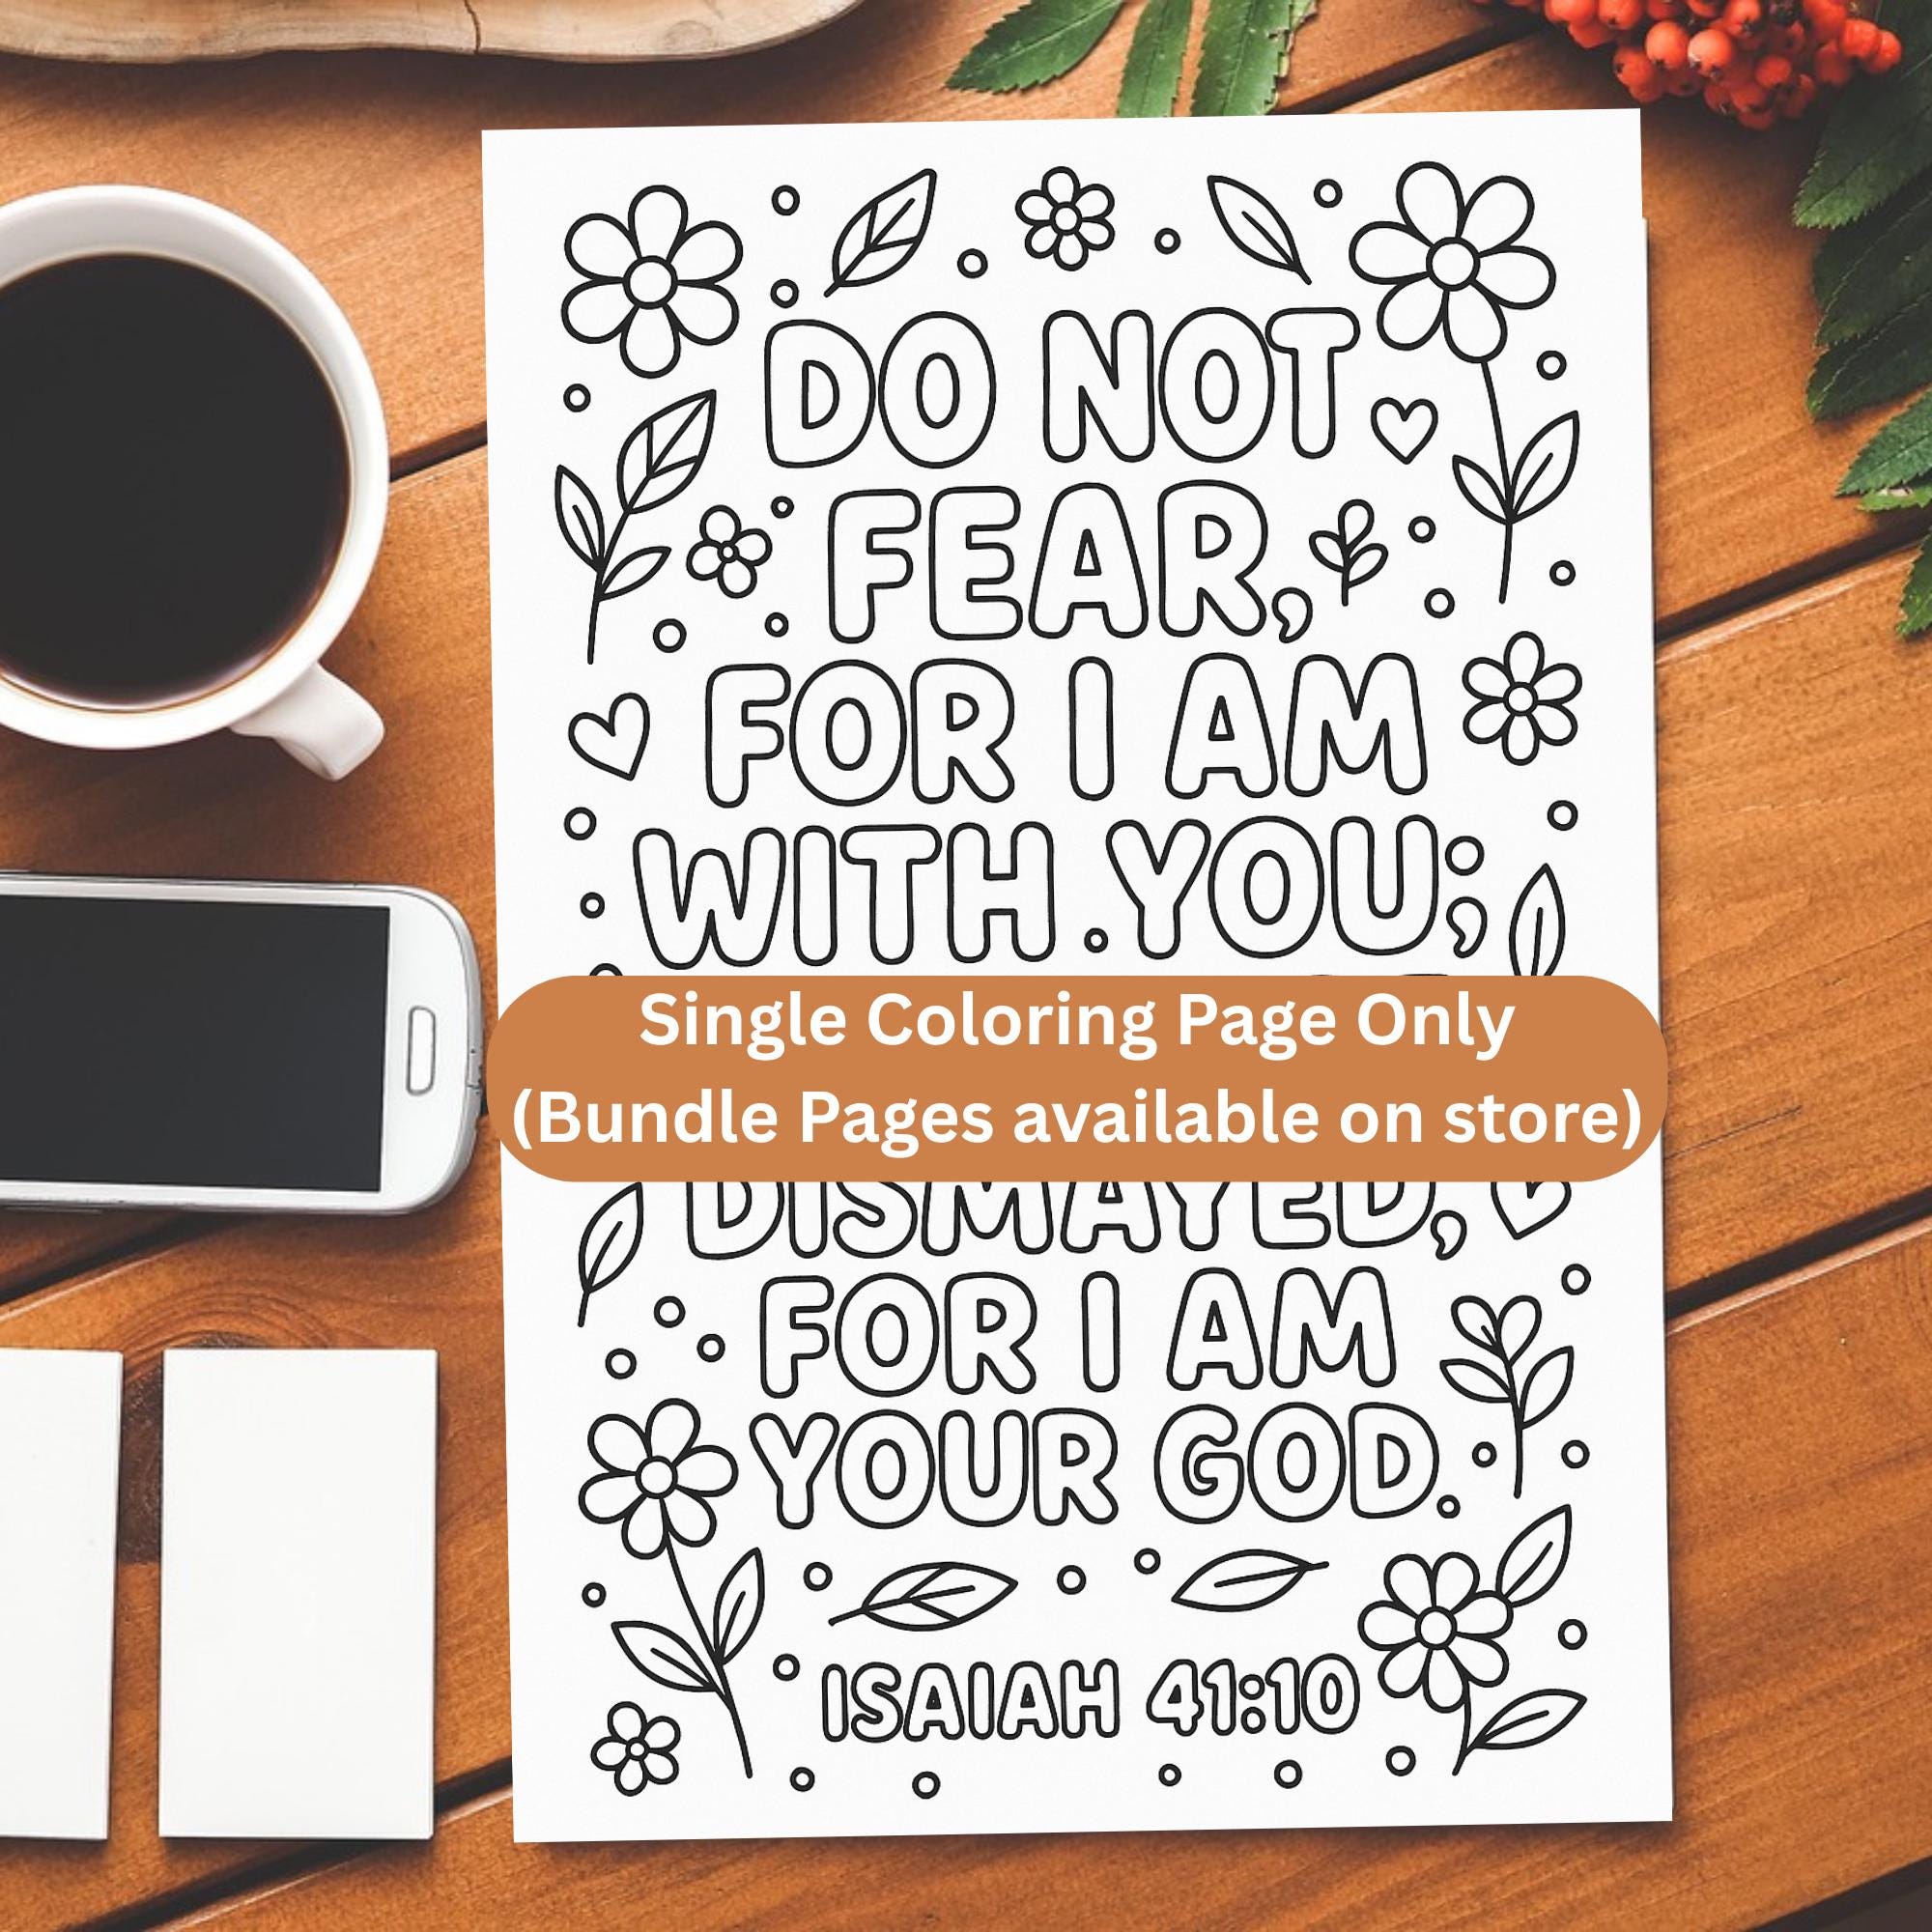 DO NOT
FEAR,
FOR I AM
WITH YOU;
Single Coloring Page Only
(Bundle Pages available on store)
DISMAYED,
FOR I AM
YOUR GOD.
ISAIAH 41:10